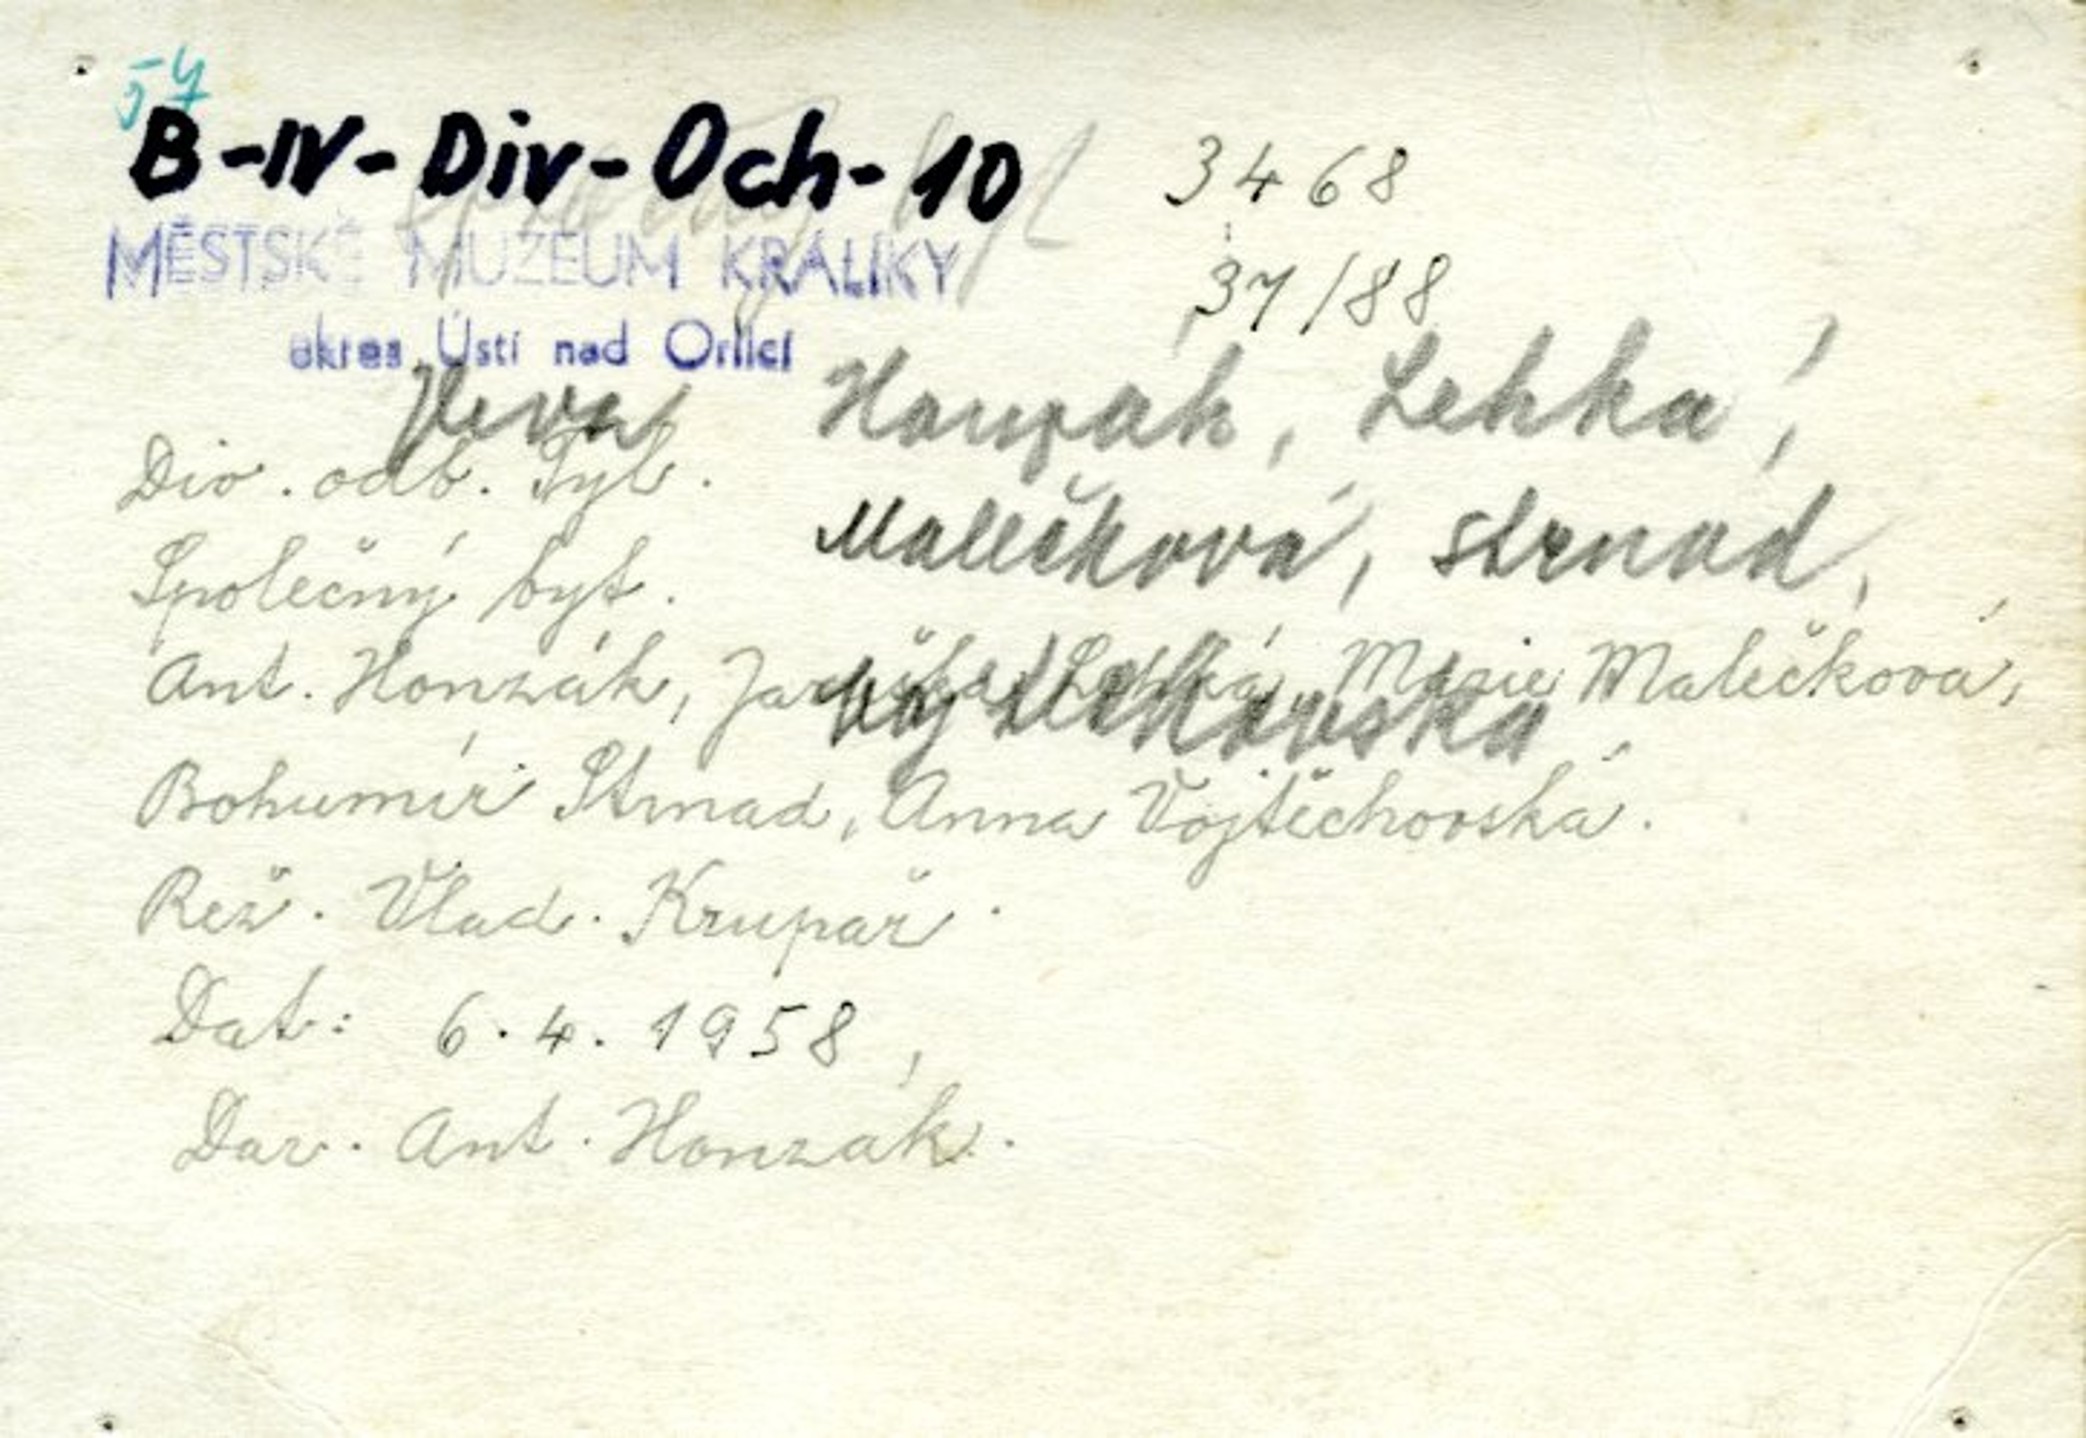 57
B-IV-Div-Och-10
3468
MĚSTSKÉ MUZEUM KRÁLÍKY
37/88
okres Ústí nad Orlicí
Lehká,
Div. odb. Tyl.
Malečková, strnad,
Společný byt.
Ant. Honzák, Lehká, Marie Malečková,
Bohumír Strnad, Anna Vojtěchovská.
Rež. Vlad. Krupař.
Dat: 6.4.1958,
Dar. Ant. Honzák.